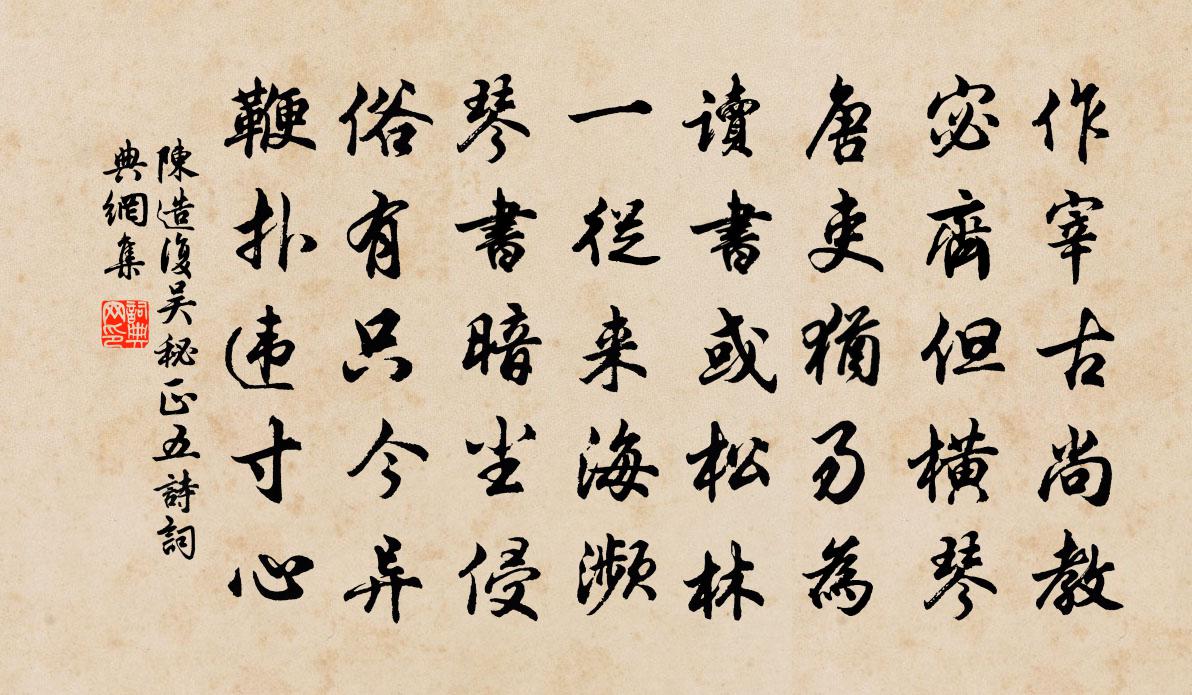 作宰古尚教
宓齊但橫琴
唐吏猶易為
讀書或松林
一從来海瀕
琴書暗尘侵
俗有只今异
鞭扑违寸心
陳造復吳秘正五詩詞
典網集
詞典
网印